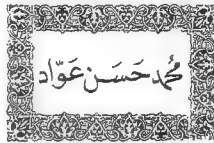 مُحَمَّد حَسَن عَوَّاد